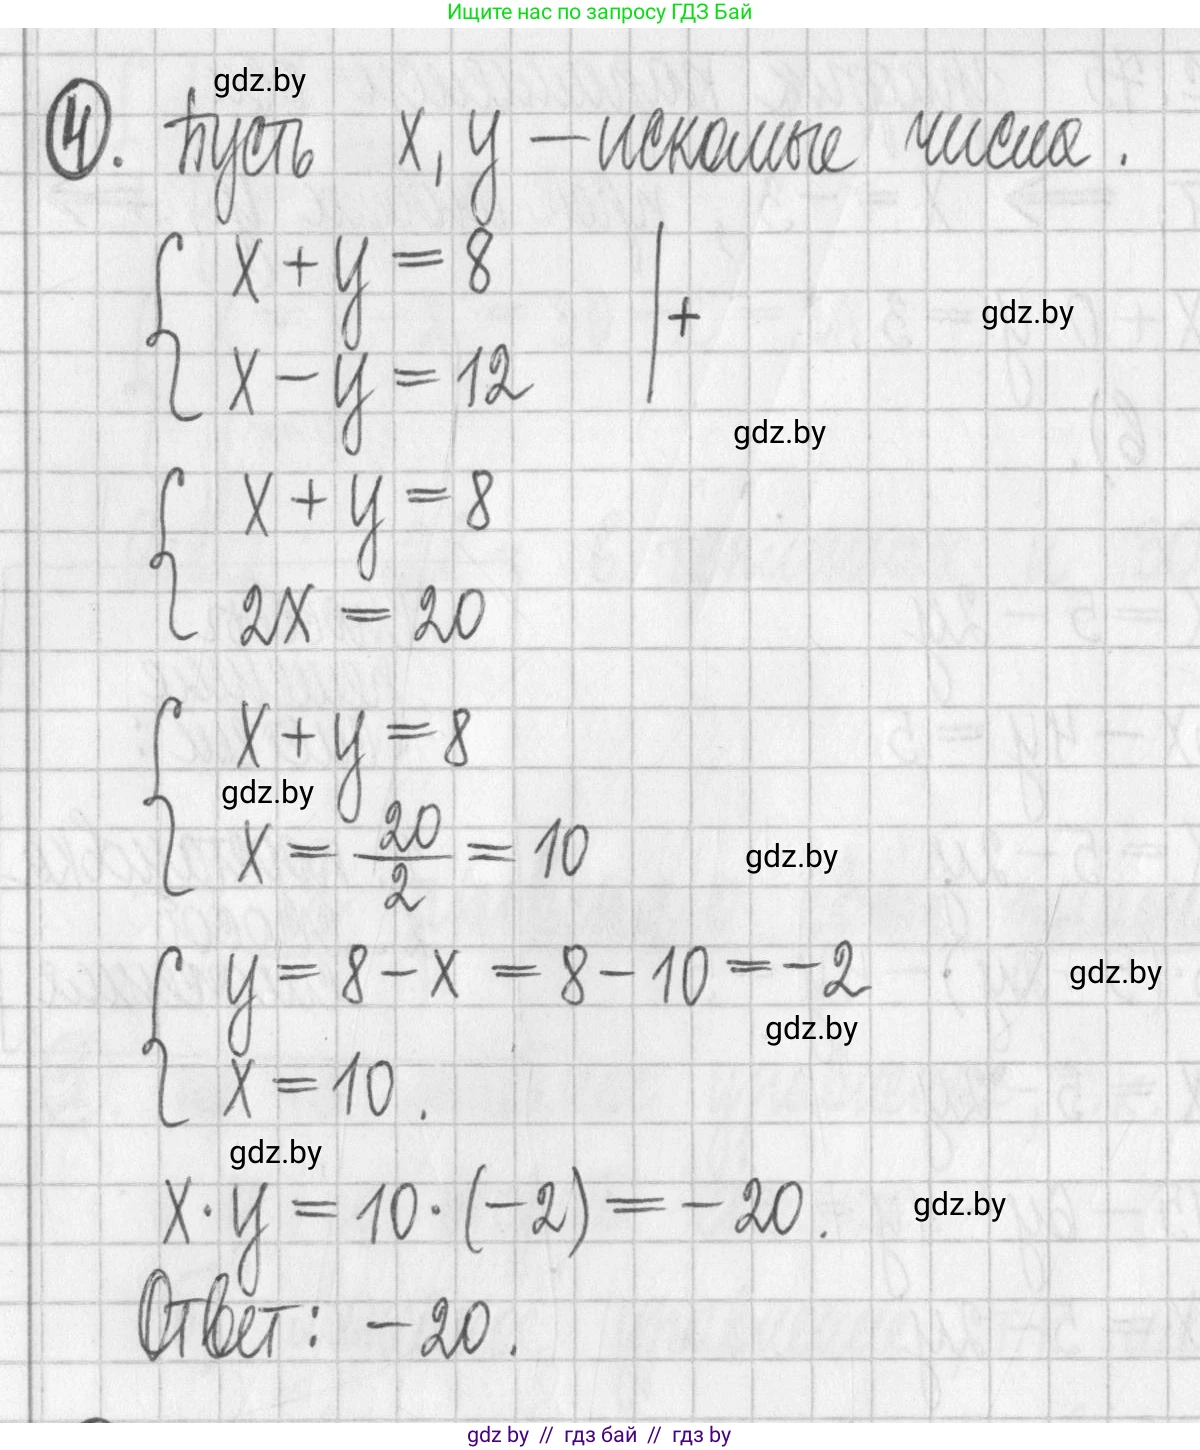 Ищите нас по запросу ГДЗ Бай
gdz.by
4. Пусть x, y — искомые числа.
x + y = 8
+
gdz.by
x − y = 12
gdz.by
x + y = 8
2x = 20
x + y = 8
gdz.by
x = 20/2 = 10
gdz.by
y = 8 − x = 8 − 10 = −2
gdz.by
gdz.by
x = 10.
gdz.by
x · y = 10 · (−2) = −20.
gdz.by
Ответ: −20.
gdz by // гдз бай // гдз by